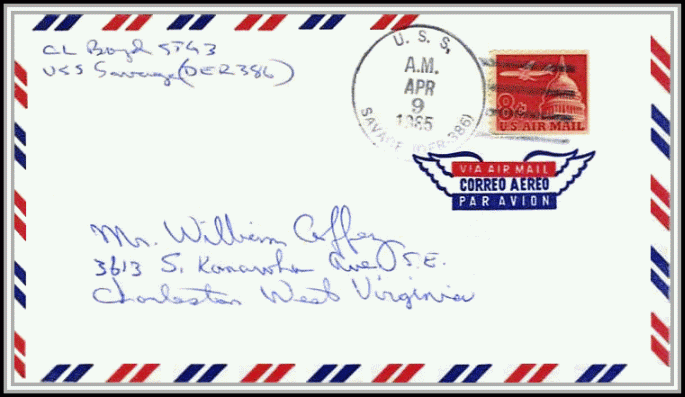 CL Boyd STG3
USS Savage (DER 386)
U. S. S.
A.M.
APR
9
1965
SAVAGE (DER-386)
8¢
U S AIR MAIL
VIA AIR MAIL
CORREO AEREO
PAR AVION
Mr. William Coffey
3613 S. Kanawha Ave, S.E.
Charleston West Virginia